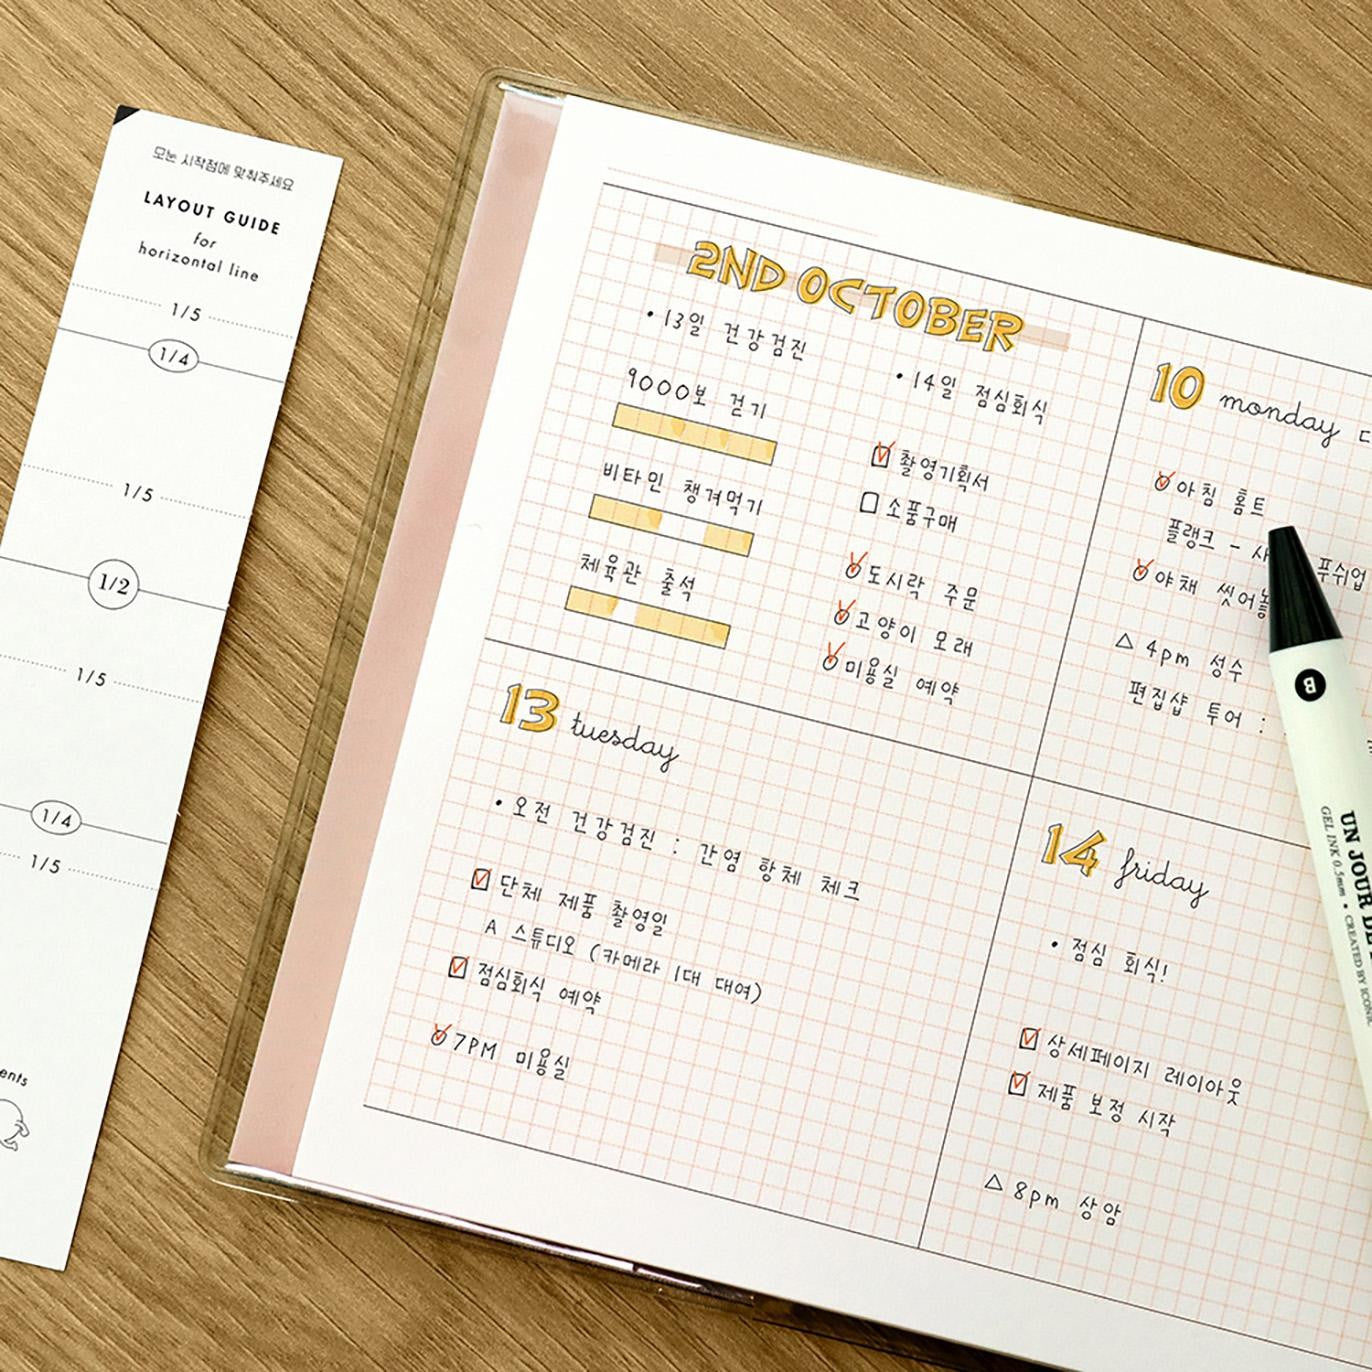 모눈 시작점에 맞춰주세요
LAYOUT GUIDE
for
horizontal line
1/5
1/4
1/5
1/2
1/5
1/4
1/5
2ND OCTOBER
• 13일 건강검진
9000보 걷기
비타민 챙겨먹기
체육관 출석
• 14일 점심회식
촬영기획서
소품구매
도시락 주문
고양이 모래
미용실 예약
10 monday
아침 홈트
플랭크 -
푸쉬업
야채 씻어놓
△ 4pm 성수
편집샵 투어 :
13 tuesday
• 오전 건강검진 : 간염 항체 체크
단체 제품 촬영일
A 스튜디오 (카메라 1대 대여)
점심회식 예약
7PM 미용실
14 friday
• 점심 회식!
상세페이지 레이아웃
제품 보정 시작
△ 8pm 상암
B
UN JOUR DE
GEL INK 0.5mm • CREATED BY ICONIC